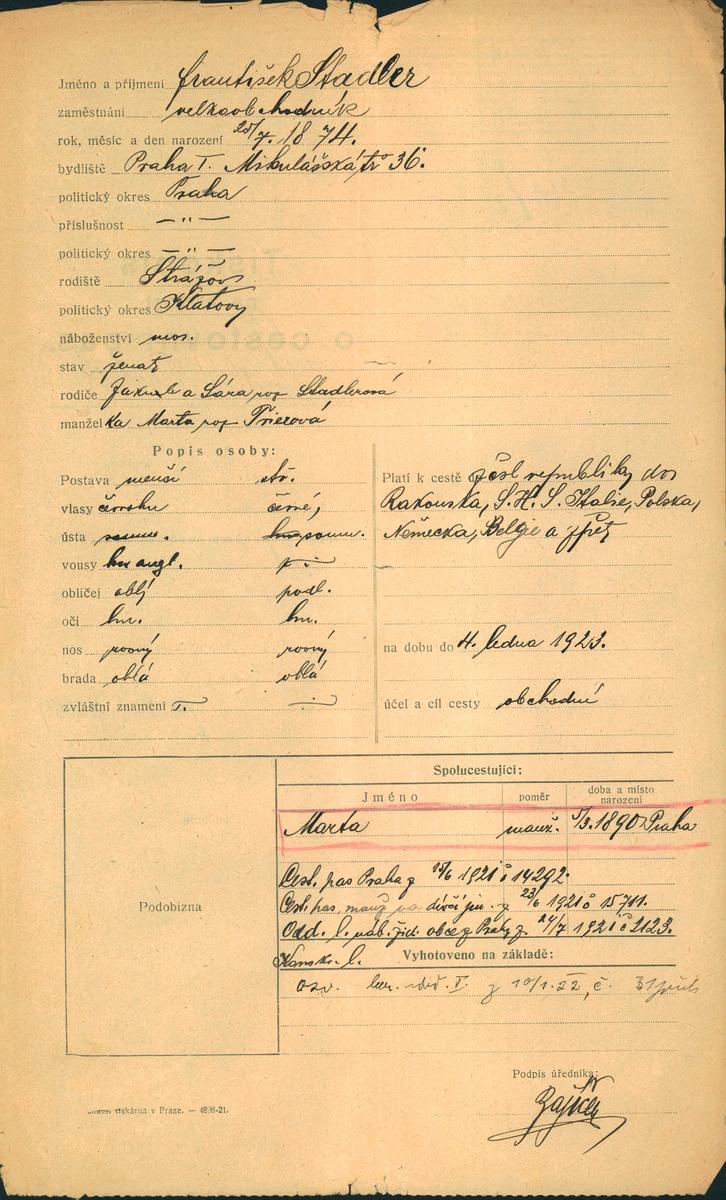 Jméno a příjmení František Stadler
zaměstnání velkoobchodník
rok, měsíc a den narození 25/7. 1874.
bydliště Praha I. Mikulášská tř 36.
politický okres Praha
příslušnost — „ —
politický okres — „ —
rodiště Strážov
politický okres Klatovy
náboženství mos.
stav ženat
rodiče Jakub a Sára roz Stadlerová
manželka Marta roz
Popis osoby:
Postava menší stř.
vlasy černé,
ústa soum.
vousy angl.
obličej oblý podl.
oči hn. hn.
nos rovný rovný
brada oblá oblá
zvláštní znamení
Platí k cestě do čsl republiky do
Rakouska, S.H.S. Italie, Polska,
Německa, Belgie a zpět
na dobu do 4. ledna 1923.
účel a cíl cesty obchodní
Spolucestující:
Jméno poměr doba a místo narození
Marta manž. 5/3. 1890 Praha
Cest. pas Praha z 15/6 1921 č 14292.
Cest. pas. manž na dívčí jm. z 23/6 1921 č 15711.
Odd. l. náb. žid. obce z Prahy z 24/7 1921 č 2123.
Vyhotoveno na základě:
z 10/1.22, č.
Podobizna
Podpis úředníka:
tiskárna v Praze. — 4898-21.